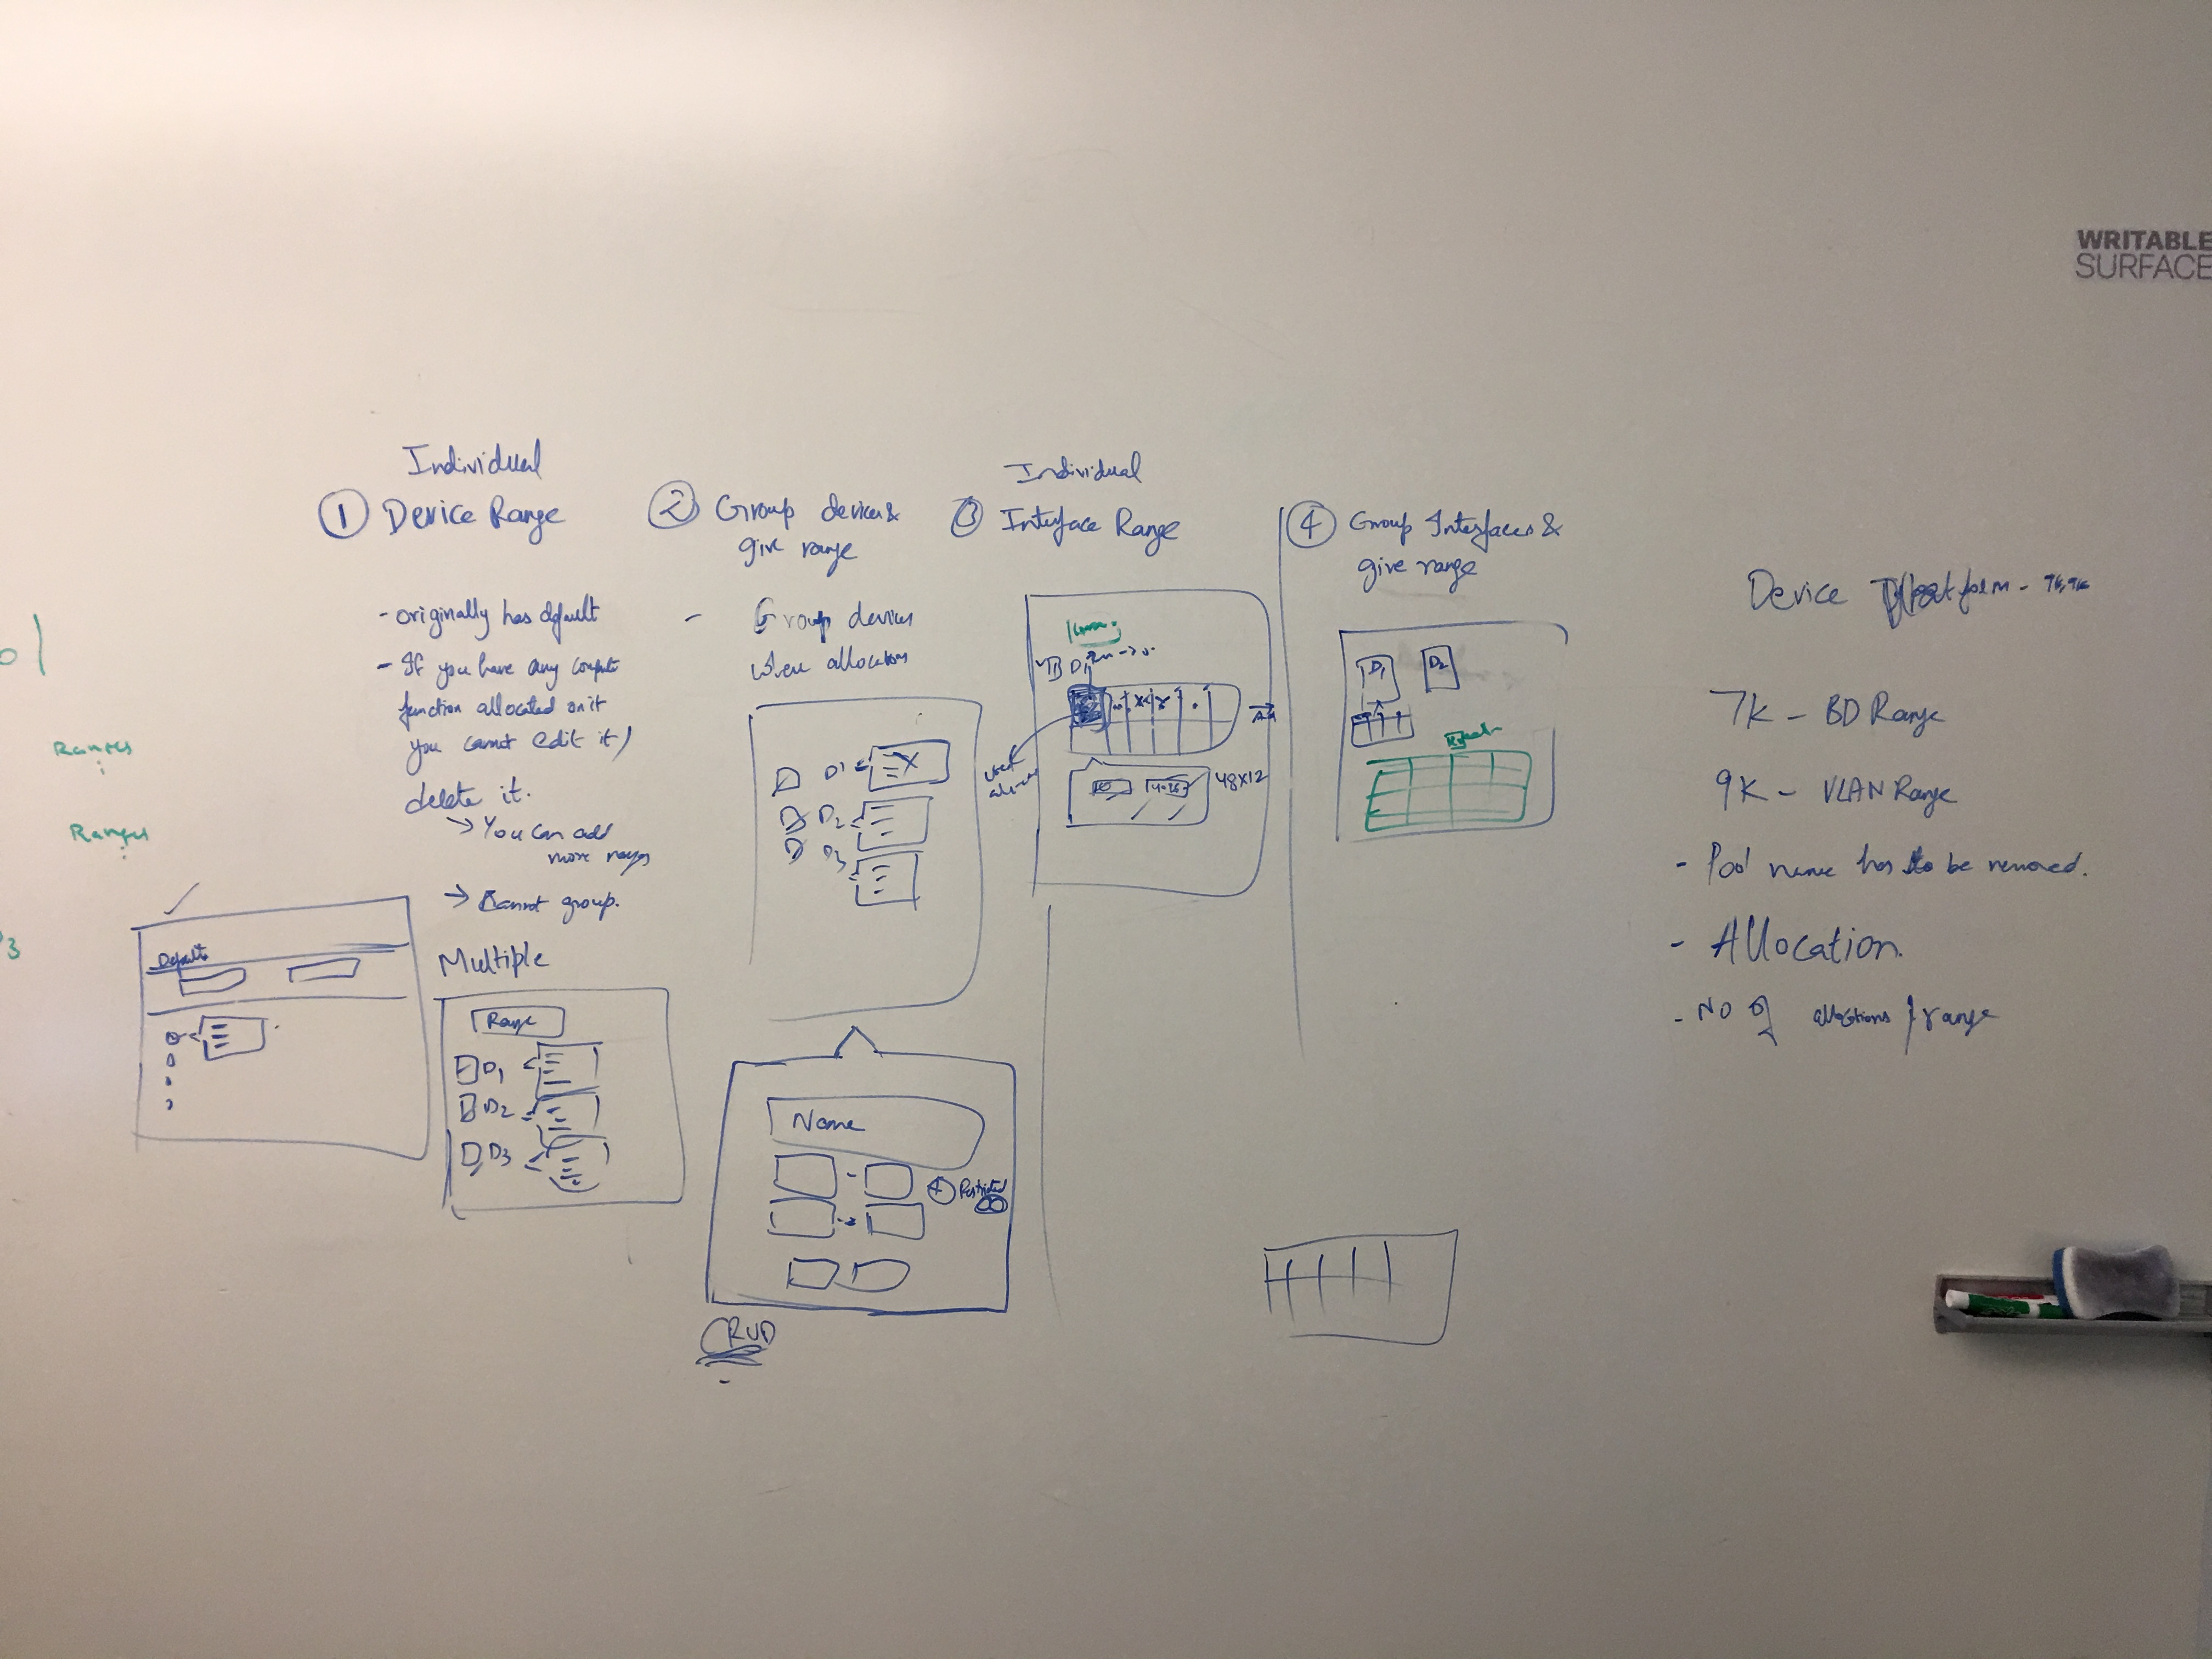 WRITABLE
SURFACE
Individual
① Device Range
- originally has default
- If you have any comput
function allocated on it
you cannot edit it /
delete it.
→ You can add
more ranges
→ Cannot group.
Default
Multiple
Range
D1
D2
D3
② Group devices &
give range
- Group devices
when allocations
D1
D2
D3
Name
+ Restricted
CRUD
Individual
③ Interface Range
D1
48x12
④ Group Interfaces &
give range
D1
D2
Device Platform - 7K, 9K
7K - BD Range
9K - VLAN Range
- Pool name has to be removed.
- Allocation.
- No of allocations / range
Ranges
Ranges
3